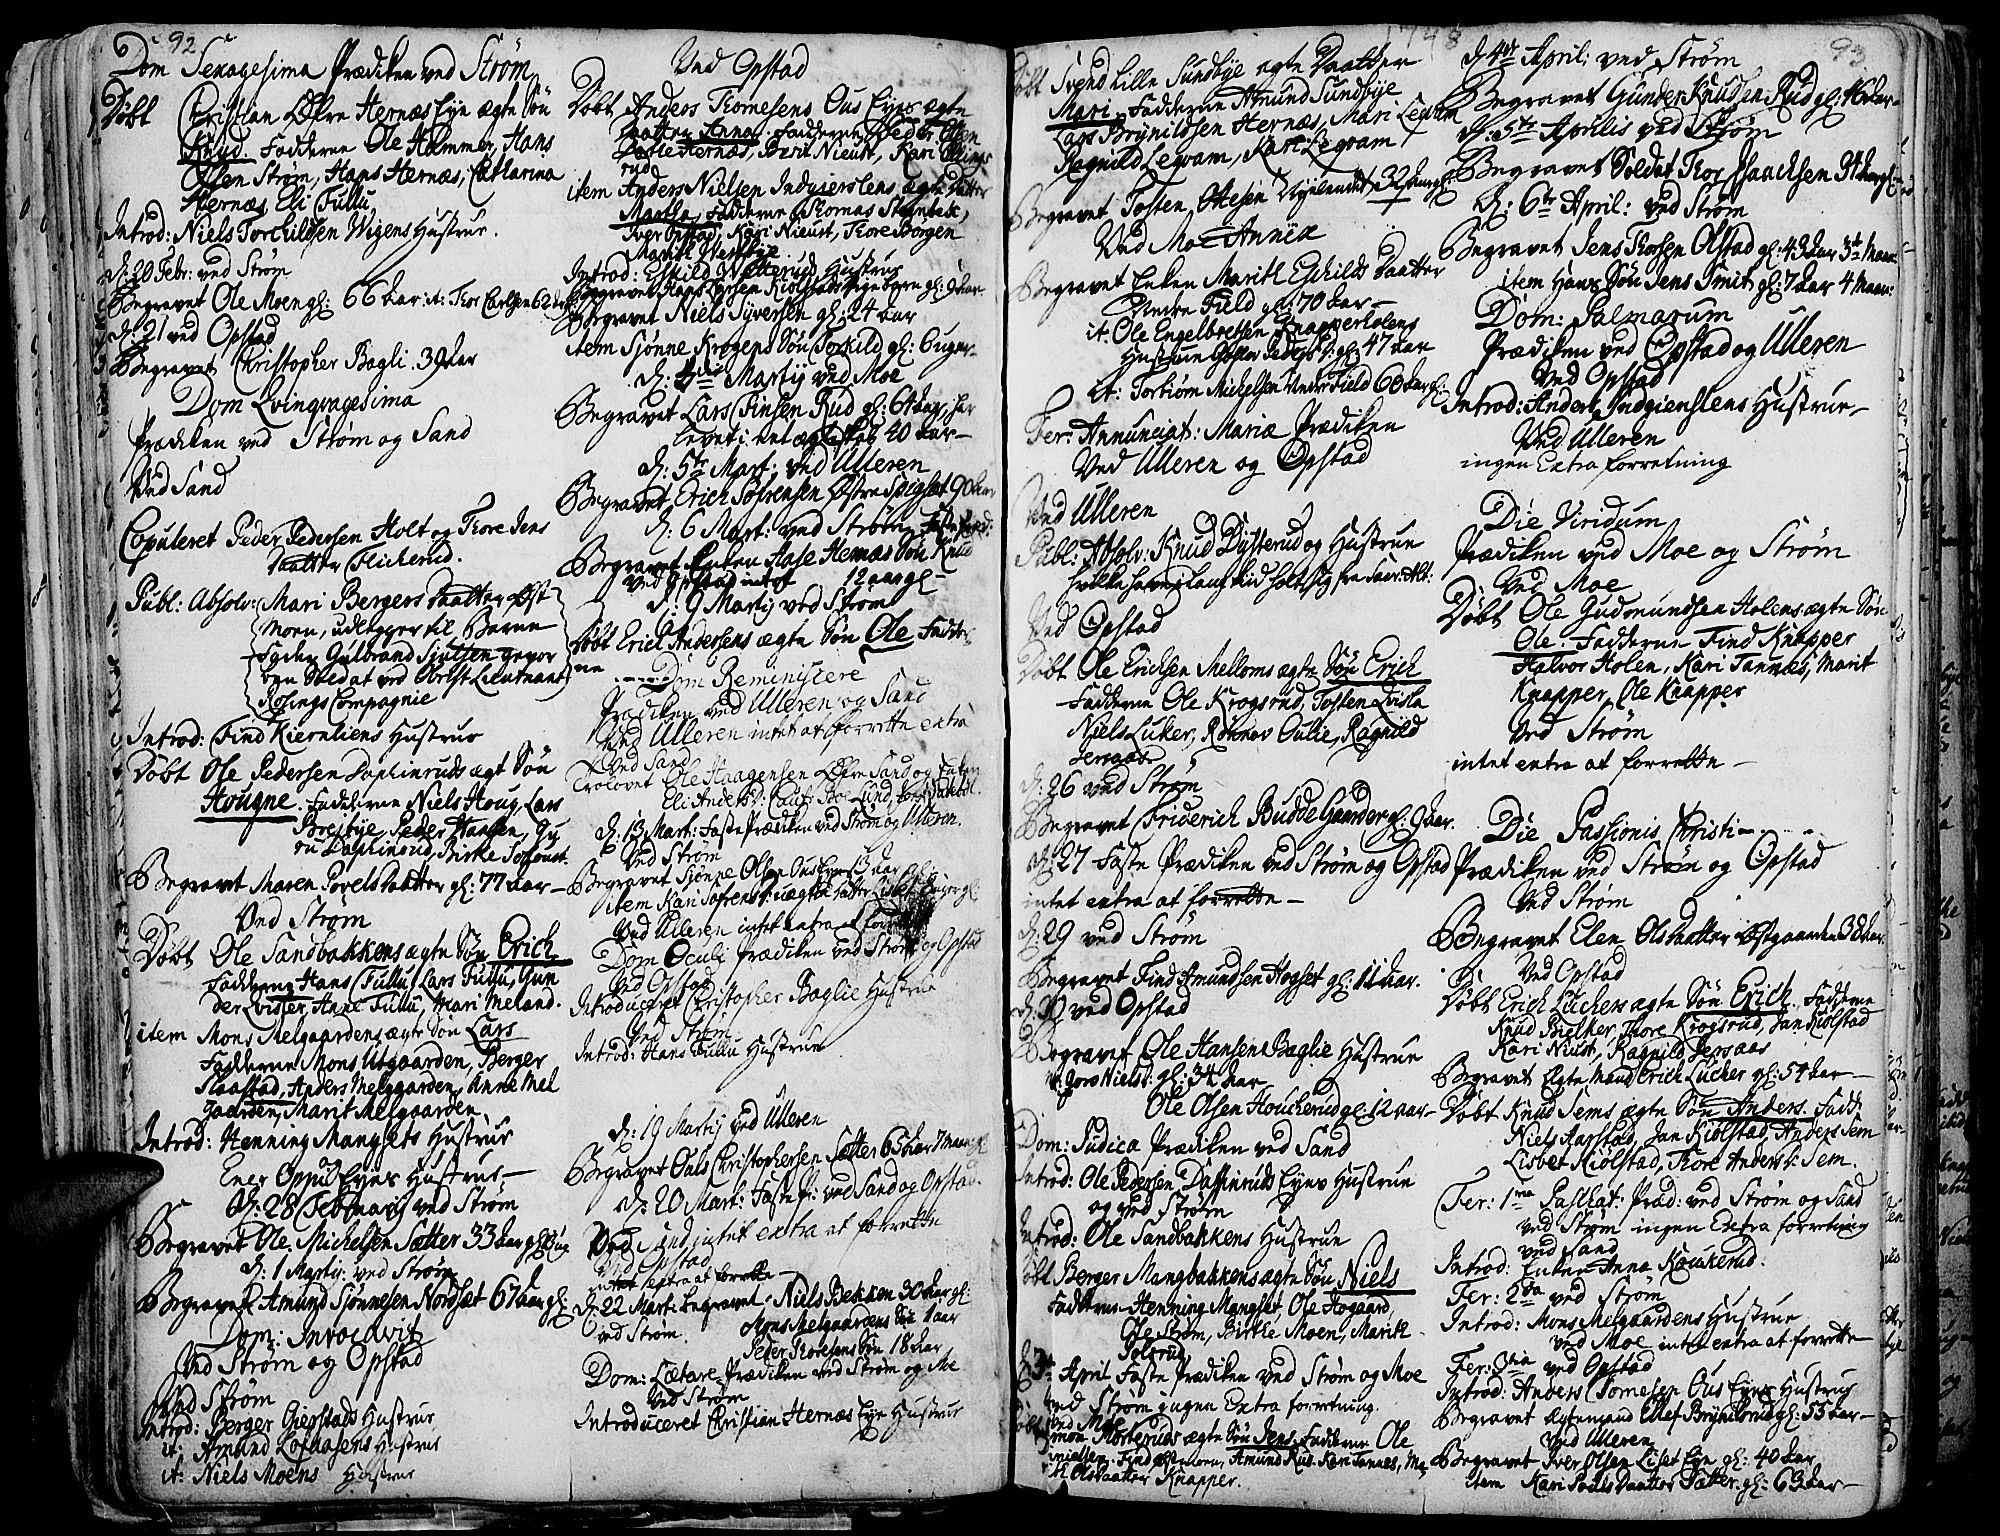 92
Dom Sexagesima Prædiken ved Strøm
Døbt Christian Øfre Hernæs Eye ægte Søn
Knud. Fadderne Ole Hammer, Hans
Olsen Strøm, Hans Hernæs, Catharina
Hernæs, Eli Fullu
Introd: Niels Torchildsen Wigens Hustrue.
d: 20 Febr: ved Strøm
Begravet Ole Moen gl: 66 Aar it: Thor Carlsen 62 Aar
d: 21 ved Opstad
Begravet Christopher Bagli. 39 Aar
Dom Qvinqvagesima
Prædiken ved Strøm og Sand
Ved Sand
Copuleret Peder Pedersen Holt og Thore Jens
Daatter Flicherud.
Publ: Absolv: Mari Bergers Daatter Øst
Moen, udlegger til Barne
Fader Gulbrand Siulsen gevor
ben Soldat ved Obrist Lieutnant
Rosings Compagnie
Introd: Find Kiernliens Hustrue
Døbt Ole Pedersen Daphinruds ægt Søn
Hougne. Fadderne Niels Houg, Lars
Breibye, Peder Haagen, Gu
ru Daphinrud, Birte
Begravet Maren Povels Daatter gl: 77 Aar
Ved Strøm
Døbt Ole Sandbakkens ægte Søn Erich
Fadderne Hans Fullu, Lars Fullu, Gun
der Qvister, Anne Fullu, Mari Meland.
item Mons Melgaardens ægte Søn Lars
Fadderne Mons Utgaarden, Berger
Slaastad, Anders Melgaarden, Anne Mel
gaarden, Marit Melgaarden
Introd: Henning Mangsets Hustrue
Ener Oppud Eyes Hustrue
d: 28 Februarij ved Strøm
Begravet Ole Michelsen Sætter 33 Aar gl
d: 1 Martij ved Strøm
Begravet Amund Siønnesen Nordset 67 aar gl
Dom: Invocavit
Ved Strøm og Opstad
Ved Strøm
Introd: Berger Gierstads Hustrue
it: Amund Lofaasens Hustrue
it: Niels Moens Hustrue
Ved Opstad
Døbt Anders Thomesens Ous Eyes ægte
Daatter Anna. Fadderne Peder
Hernæs, Berit Nieust, Kari
rud
item Anders Nielsen Indgierslens ægte Datter
Martha. Fadderne Thomas Steenbek,
Iver Opstad, Kari Nieust, Thore Borgen
Marith Westbye
Introd: Eskild Wetterud Hustrue
Begravet Hans Larsen Kiølstads Pigebarn gl: 9 Aar.
Begravet Niels Syversen gl: 24 Aar
item Siønne Krogens Søn Torkild gl: 6 uger
d: 4de Martij ved Moe
Begravet Lars Finsen Rud gl: 64 Aar, har
levet i et ægteskab 40 Aar
d: 5te Mart: ved Ulleren
Begravet Erich Sofrensen Østre Spigset 90 Aar
d: 6 Mart: ved Strøm Faste Præd:
Begravet Enken Aase Hernæs Søn Knud
Ved Opstad intet 12 aar gl
d: 9 Martij ved Strøm
Døbt Erich Andersens ægte Søn Ole. Fadde
rne
Dom Reminiscere
Prædiken ved Ulleren og Sand
Ved Ulleren intet at forrette extra
Ved Sand
Trolovet Ole Haagensen Øfre Sand og Enken
Eli Anders D:
d: 13 Mart: Faste Prædiken ved Strøm og Ulleren.
Ved Strøm
Begravet Siønne Olsen Ous Eye 13 aar
item Kari Sofrens D: uægte Datter Lisbet uger gl:
Ved Ulleren intet extra at forrette
Dom Oculi Prædiken ved Strøm og Opstad
Ved Opstad
Introduceret Christopher Baglie Hustrue
Ved Strøm
Introd: Hans Fullu Hustrue
d: 19 Martij ved Ulleren
Begravet Ouls Christophersen Sætter 65 Aar 7 Maan gl
d: 20 Mart: Faste Pr: ved Sand og Opstad.
Ved Sand intet extra at forrette
Ved Opstad
intet extra at forrette
d: 22 Mart: begravet Niels Bekken 30 Aar gl:
ved Strøm. Mons Melgaardens Søn 1 aar
Peder Thoresens Søn 18 Aar
Dom: Lætare Prædiken ved Strøm og Moe
Ved Strøm
Introduceret Christian Hernæs Eye Hustrue
1748
Døbt Svend Lille Sundbye ægte Daatter
Mari. Fadderne Amund Sundbye
Lars Brynildsen Hernæs, Mari Legvam
Ragnild Legvam, Kari Legvam
Begravet Tosten Ottesen 32 Aar gl
Ved Moe Annex
Begravet Enken Marith Eskilds Daatter
Undre Field gl: 70 Aar
it. Ole Engelbretsen Knapperholens
Hustrue Peders D: gl: 47 aar
it: Torbiørn Michelsen Undre Field 60 Aar gl:
Fer: Annunciat: Mariæ Prædiken
Ved Ulleren og Opstad
Ved Ulleren
Publ: Absolv: Knud Dysterud og Hustrue
hvilke have lang tiid holt sig fra Sacr: Alt:
Ved Opstad
Døbt Ole Erichsen Melloms ægte Søn Erich
Fadderne Ole Krogsrud, Tosten Qvisla
Niels Luker, Rønnov Oulie, Ragnild
Jersaas
d: 26 ved Strøm
Begravet Friderich Budde Gaarder gl: 9 Aar.
d: 27 Faste Prædiken ved Strøm og Opstad
intet extra at forrette
d: 29 ved Strøm
Begravet Find Amundsen Hogset gl: 11 Aar.
d: 30 ved Opstad
Begravet Ole Hansen Baglie Hustrue
Goro Niels D: gl: 34 Aar
Ole Olsen Houcherud gl: 12 Aar
Dom: Judica Prædiken ved Sand
Introd: Ole Pedersen Daphinruds Eyes Hustrue
og ved Strøm
Introd: Ole Sandbakkens Hustrue
Døbt Berger Mangbakkens ægte Søn Niels
Fadderne Henning Mangset, Ole Hogaard,
Ole Strøm, Birthe Moen, Marith
Tolsrud
d: 3de April Faste Prædiken ved Strøm og Moe
Ved Strøm ingen Extra forretning.
Ved Moe
Døbt Simon Morteruds ægte Søn Jens. Fadderne Ole
Find, Amund Rus. Kari Tannæs, Ma
rit Olsdaatter Knapper.
93
d: 4de April: ved Strøm
Begravet Gunder Knudsen Rud gl: 46 Aar
d: 5te Aprilis ved Strøm
Begravet Soldat Thor Isaachsen 34 Aar gl
d: 6te April: ved Strøm
Begravet Jens Thorsen Olstad gl: 43 Aar 3de Maan:
item Hans Søn Jens Smit gl: 7 Aar 4 Maan:
Dom: Palmarum
Prædiken ved Opstad og Ulleren
Ved Opstad
Introd: Anders Indgienslens Hustrue
Ved Ulleren
ingen Extra forretning
Die Viridum
Prædiken ved Moe og Strøm
Ved Moe
Døbt Ole Gudmundsen Holens ægte Søn
Ole. Fadderne Find Knapper
Halvor Holen, Kari Tannæs, Marit
Knapper, Ole Knapper
Ved Strøm
intet extra at forrette
Die Passionis Christi
Prædiken ved Strøm og Opstad
Ved Strøm
Begravet Elen Olsdaatter Østgaarden 38 Aar
Ved Opstad
Døbt Erich Luchers ægte Søn Erich. Fadderne
Knud Bielker, Thore Krogsrud, Jan Kiølstad
Kari Nieust, Ragnild Jersaas
Begravet Ægte Mand Erich Lucher gl: 54 Aar
Døbt Knud Sems ægte Søn Anders. Fadd:
Niels Aarstad, Jan Kiølstad, Anders Sem
Lisbet Kiølstad, Thore Anders D: Sem.
Fer: 1ma Paschat: Præd: ved Strøm og Sand
ved Strøm ingen Extra forretning
ved Sand
Introd: Enken Anna Kaukerud.
Fer: 2da ved Strøm
Introd: Mons Melgaardens Hustrue
ved Moe intet extra at forrette
Fer: 3tia ved Opstad
Introd: Anders Tomesen Ous Eyes Hustrue
Begravet Ægtemand Ellef Bryndsrud gl: 55 Aar
Ved Ulleren
Begravet Iver Olsen Liset Eye gl: 40 Aar
item Kari Pouls Daatter Sætter gl: 63 Aar